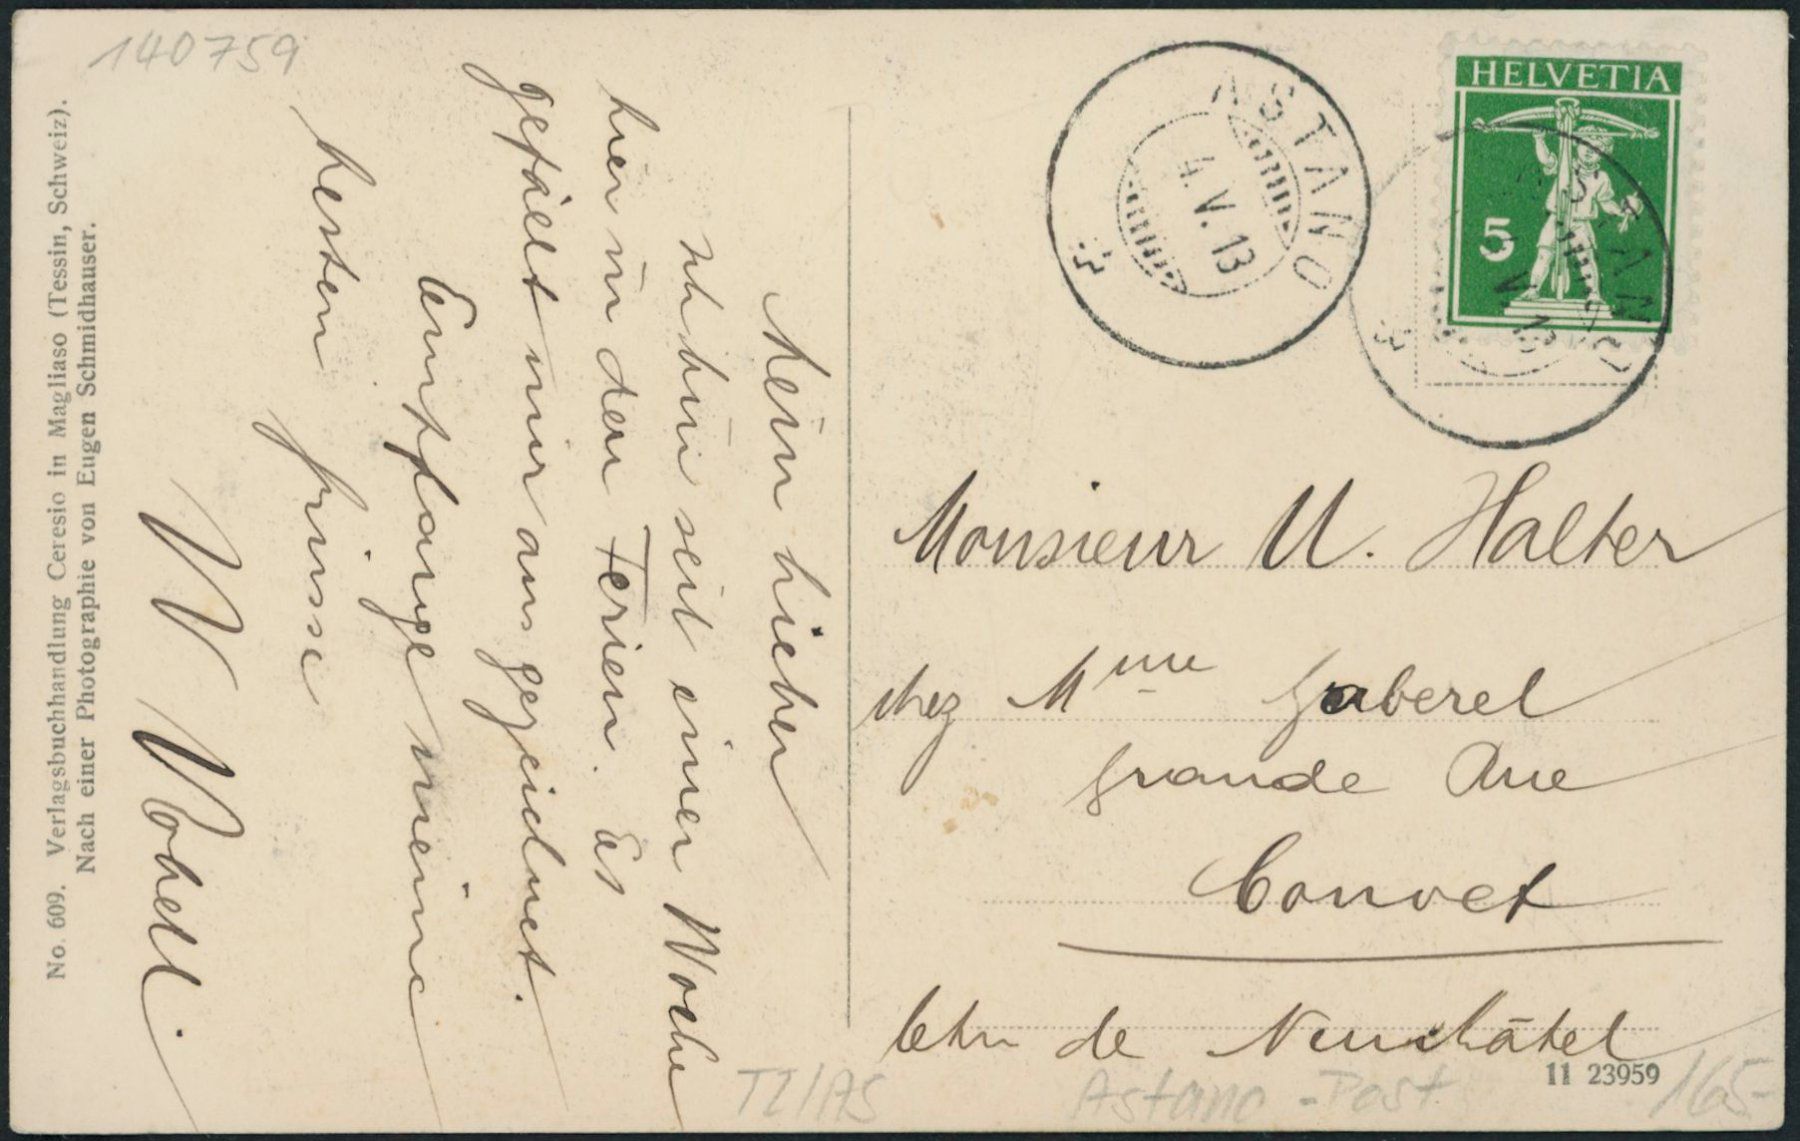 140759
No. 609. Verlagsbuchhandlung Ceresio in Magliaso (Tessin, Schweiz).
Nach einer Photographie von Eugen Schmidhauser.
Mein lieber
Ich bin seit einer Woche
hier in den Ferien. Es
gefällt mir ausgezeichnet.
Empfange meine
besten Grüsse
W
ASTANO
4. V. 13
HELVETIA
5
ASTANO
V. 13
Monsieur U. Halter
chez Mme Gaberel
Grande Rue
Couvet
Ctn de Neuchâtel
11 23959
TI/AS
Astano - Post
165-